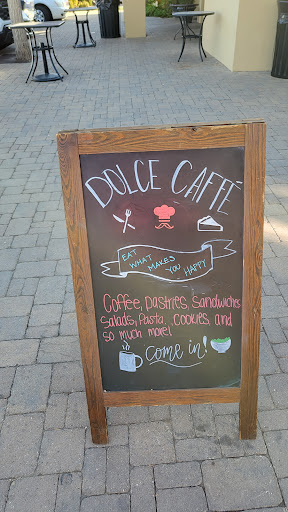 DOLCE CAFFÉ
EAT
WHAT
MAKES
YOU HAPPY
Coffee, Pastries, Sandwiches
Salads, Pasta, Cookies and
so much more!
Come in!